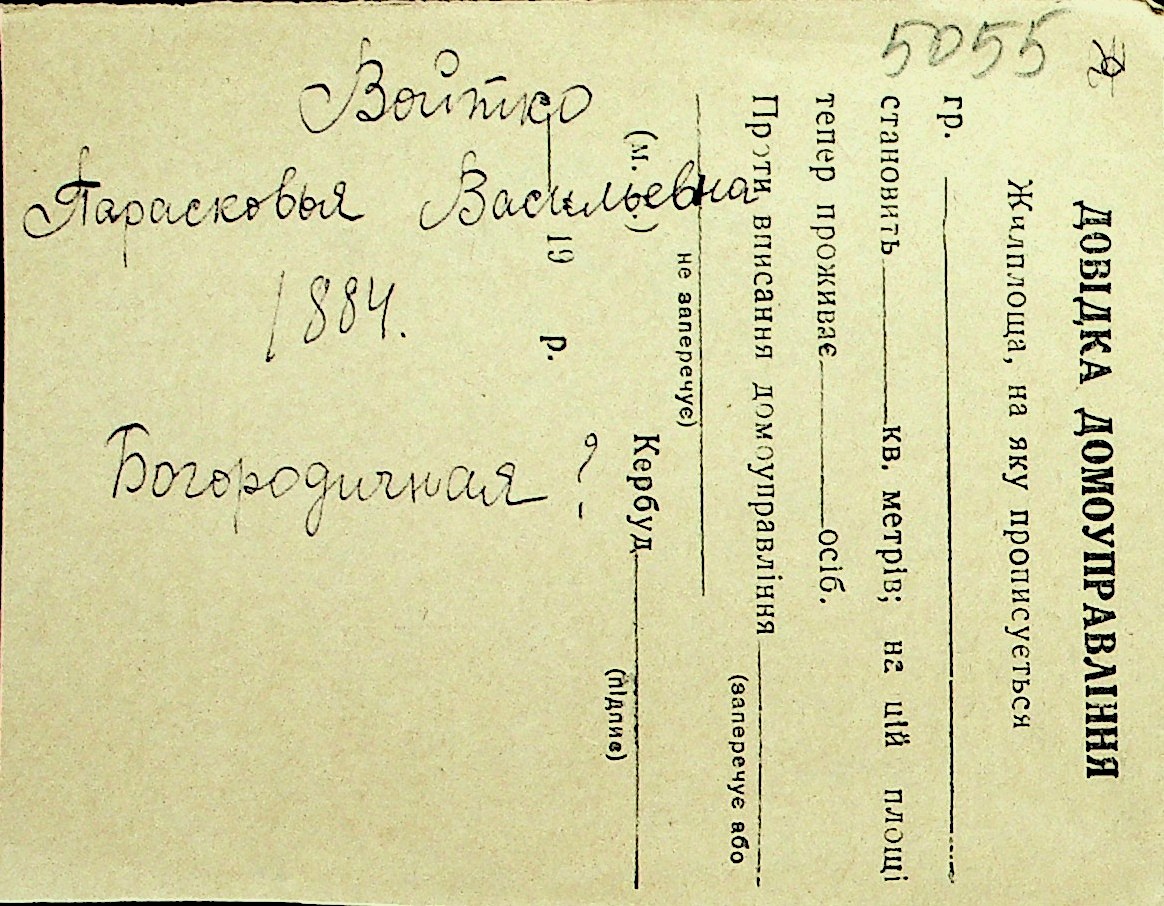 5055
Войтко
Парасковья Васильевна
1884.
Богородичная ?
ДОВІДКА ДОМОУПРАВЛІННЯ
Жилплоща, на яку прописується
гр.
становить кв. метрів; на цій площі
тепер проживає осіб.
Проти вписання домоуправління
(заперечує або
не заперечує)
(м. п.)
Кербуд
(підпис)
19 р.